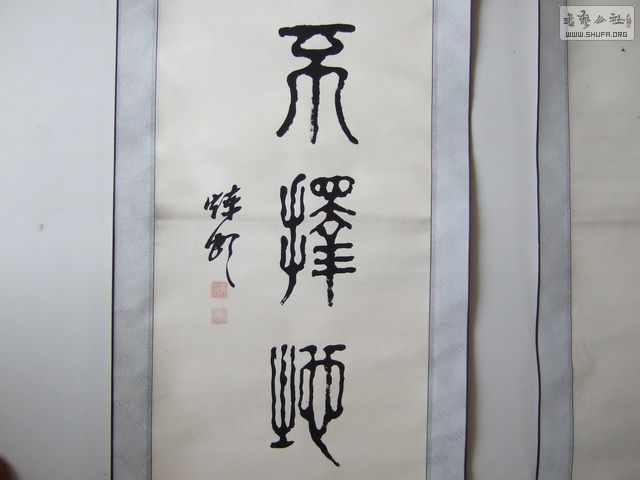 不擇地
書藝公社
WWW.SHUFA.ORG